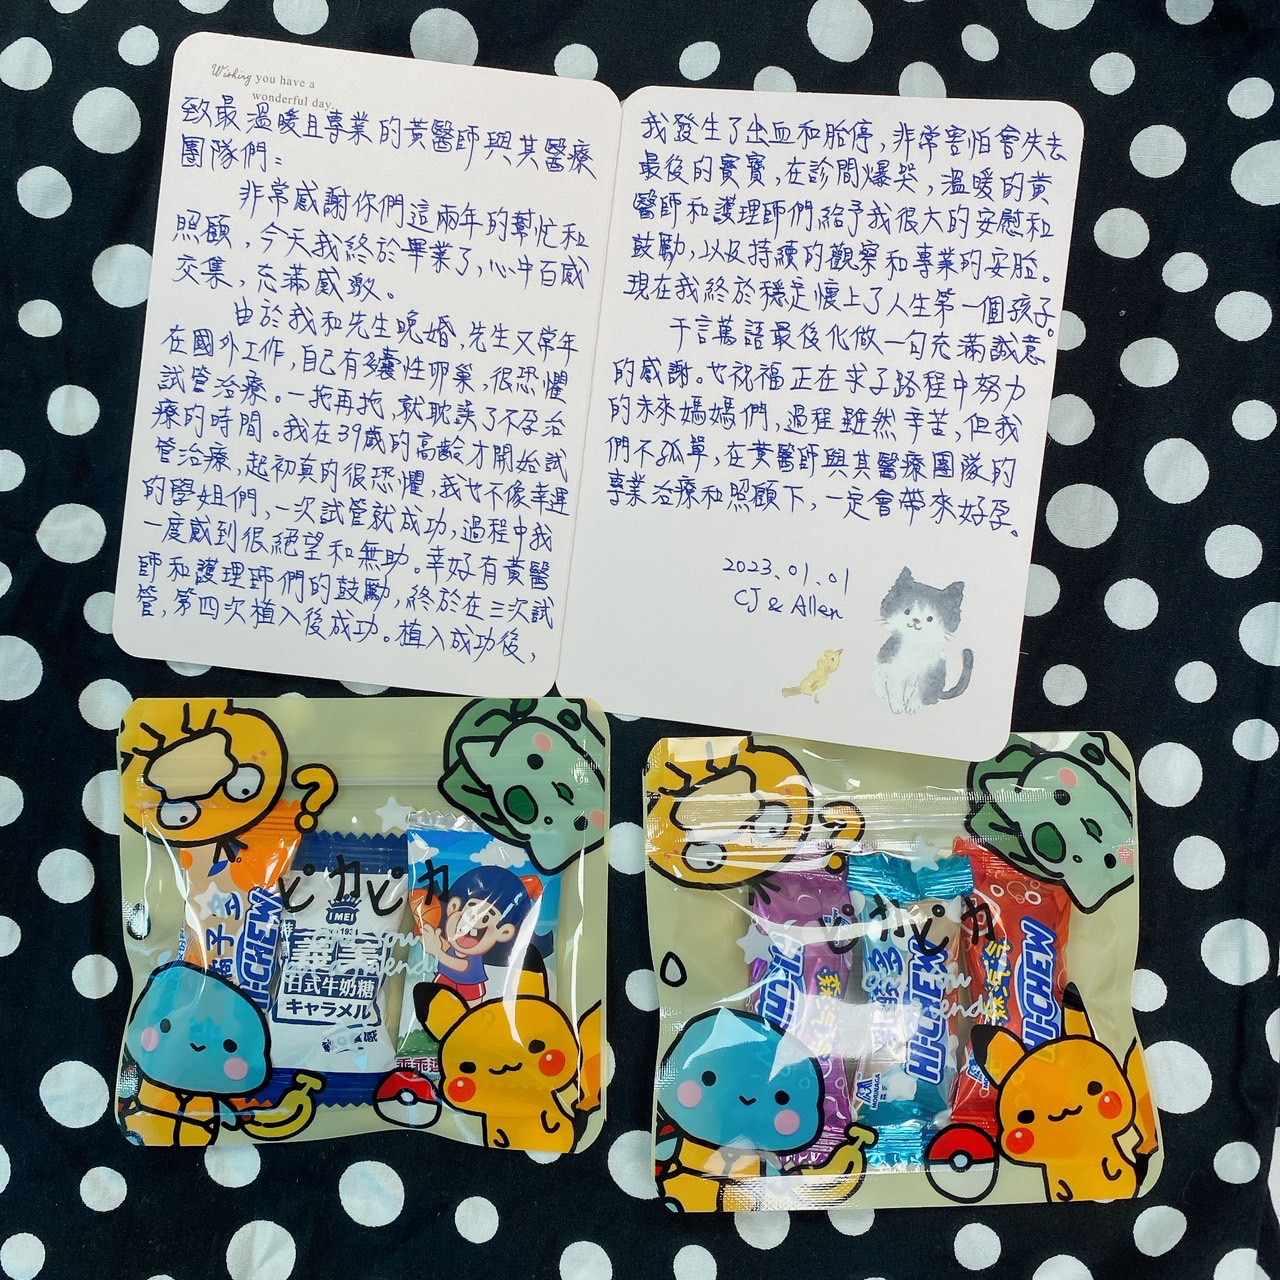 Wishing you have a
wonderful day.
致最溫暖且專業的黃醫師與其醫療
團隊們：
非常感謝你們這兩年的幫忙和
照顧，今天我終於畢業了，心中百感
交集，充滿感激。
由於我和先生晚婚，先生又常年
在國外工作，自己有多囊性卵巢，很恐懼
試管治療。一拖再拖，就耽誤了不孕治
療的時間。我在39歲的高齡才開始試
管治療，起初真的很恐懼，我也不像幸運
的學姐們，一次試管就成功，過程中我
一度感到很絕望和無助。幸好有黃醫
師和護理師們的鼓勵，終於在三次試
管，第四次植入後成功。植入成功後，
我發生了出血和胎停，非常害怕會失去
最後的寶寶，在診間爆哭，溫暖的黃
醫師和護理師們給予我很大的安慰和
鼓勵，以及持續的觀察和專業的安胎。
現在我終於穩定懷上了人生第一個孩子。
千言萬語最後化做一句充滿誠意
的感謝。也祝福正在求子路程中努力
的未來媽媽們，過程雖然辛苦，但我
們不孤單，在黃醫師與其醫療團隊的
專業治療和照顧下，一定會帶來好孕。
2023.01.01
CJ & Allen
ピカピカ
HI-CHEW
I MEI
日式牛奶糖
キャラメル
ピカピカ
HI-CHEW
HI-CHEW
HI-CHEW
MORINAGA